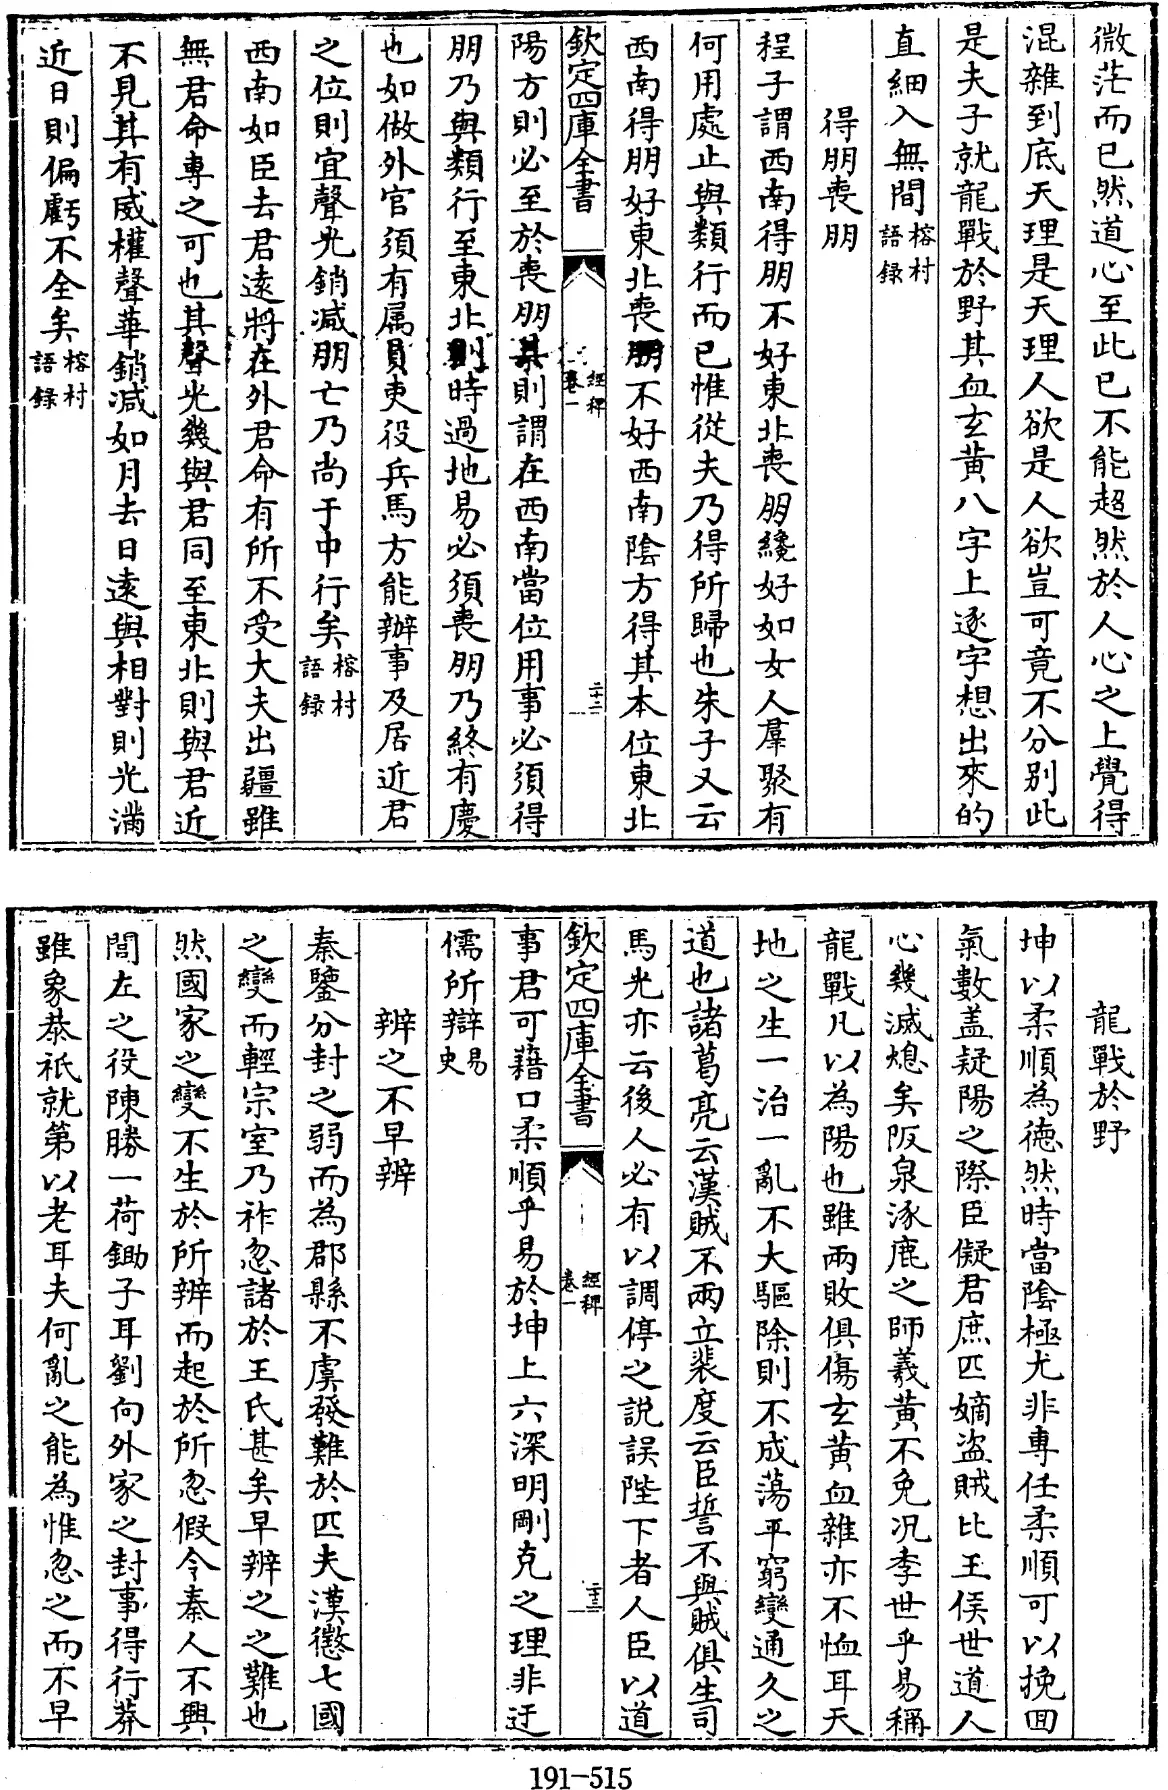 微茫而已然道心至此已不能超然於人心之上覺得
混雜到底天理是天理人欲是人欲豈可竟不分别此
是夫子就龍戰於野其血玄黄八字上逐字想出來的
直細入無間榕村語錄
得朋喪朋
程子謂西南得朋不好東北喪朋纔好如女人羣聚有
何用處止與類行而已惟從夫乃得所歸也朱子又云
西南得朋好東北喪朋不好西南陰方得其本位東北
欽定四庫全書
經稗
卷一
二十二
陽方則必至於喪朋某則謂在西南當位用事必須得
朋乃與類行至東北則時過地易必須喪朋乃終有慶
也如做外官須有属員吏役兵馬方能辦事及居近君
之位則宜聲光銷減朋亡乃尚于中行矣榕村語錄
西南如臣去君遠將在外君命有所不受大夫出疆雖
無君命專之可也其聲光幾與君同至東北則與君近
不見其有威權聲華銷減如月去日遠與相對則光滿
近日則偏虧不全矣榕村語錄
龍戰於野
坤以柔順為德然時當陰極尤非專任柔順可以挽回
氣數盖疑陽之際臣儗君庶匹嫡盗賊比王侯世道人
心幾滅熄矣阪泉涿鹿之師羲黄不免况李世乎易稱
龍戰凡以為陽也雖兩敗俱傷玄黄血雜亦不恤耳天
地之生一治一亂不大驅除則不成蕩平窮變通久之
道也諸葛亮云漢賊不兩立裴度云臣誓不與賊俱生司
馬光亦云後人必有以調停之說誤陛下者人臣以道
欽定四庫全書
經稗
卷一
二十三
事君可藉口柔順乎易於坤上六深明剛克之理非迂
儒所辯易史
辨之不早辨
秦鑒分封之弱而為郡縣不虞發難於匹夫漢懲七國
之變而輕宗室乃祚忽諸於王氏甚矣早辨之之難也
然國家之變不生於所辨而起於所忽假令秦人不興
閭左之役陳勝一荷鋤子耳劉向外家之封事得行莽
雖象恭祇就第以老耳夫何亂之能為惟忽之而不早
191-515